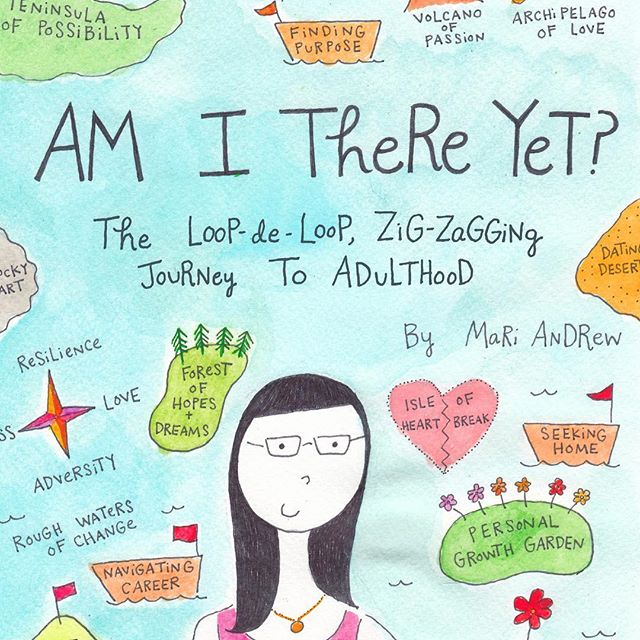 PENINSULA
OF POSSIBILITY
FINDING
PURPOSE
VOLCANO
OF
PASSION
ARCHIPELAGO
OF LOVE
AM I THERE YET?
THE LOOP-de-LOOP, ZIG-ZAGGING
JOURNEY TO ADULTHOOD
By MARI ANDREW
DATING
DESERT
RESILIENCE
LOVE
ADVERSITY
FOREST
OF
HOPES
+
DREAMS
ISLE OF
HEART BREAK
SEEKING
HOME
ROUGH WATERS
OF CHANGE
PERSONAL
GROWTH GARDEN
NAVIGATING
CAREER